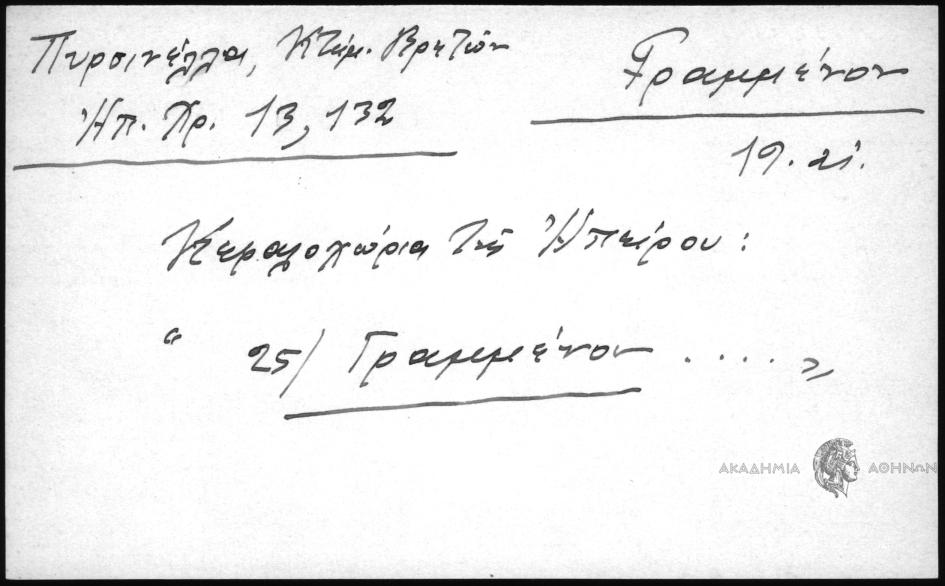 Πυρσινέλλα, Κτημ. Βρετῶν
Ἠπ. Χρ. 13, 132
Γραμμένον
19. αἰ.
Κεφαλοχώρια τῆς Ἠπείρου:
" 25/ Γραμμένον . . . . »
ΑΚΑΔΗΜΙΑ ΑΘΗΝΩΝ